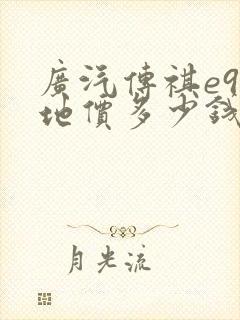 廣汽傳祺e9
地價多少錢
月光流